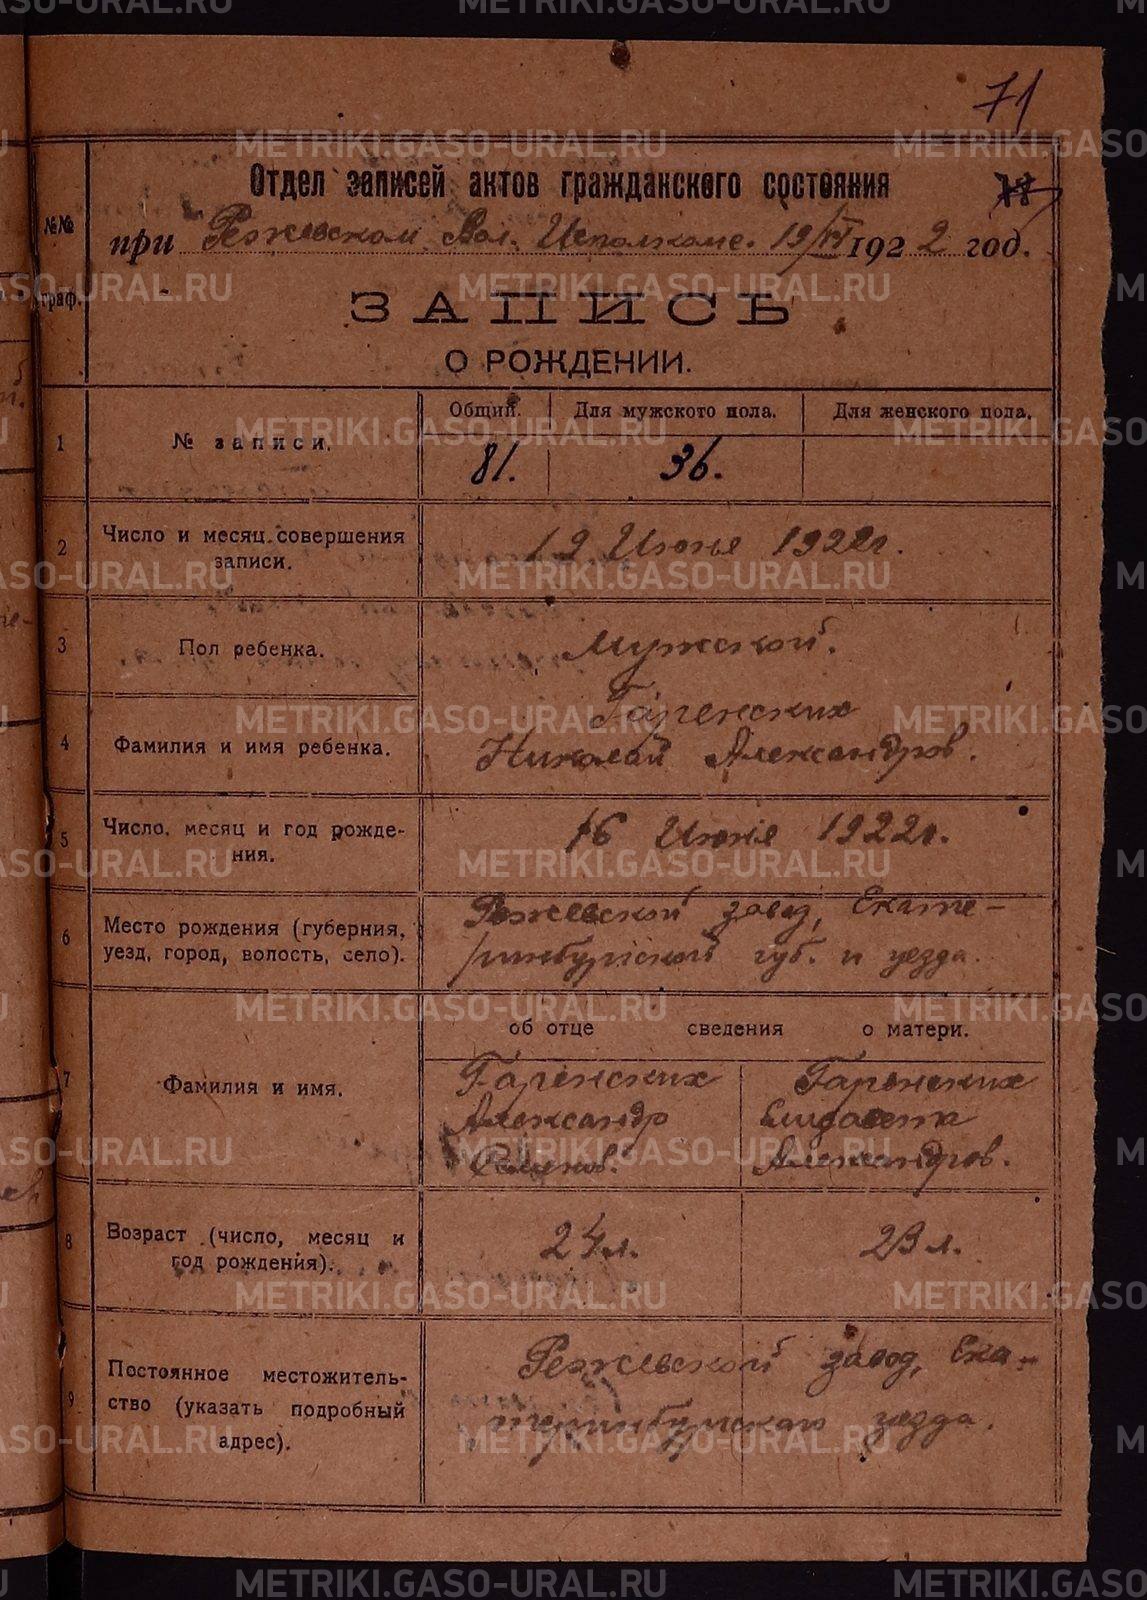 71
Отдел записей актов гражданского состояния
18
при Режевском Вол. Исполкоме. 19/VI 1922 год.
№№ граф.
ЗАПИСЬ
О РОЖДЕНИИ.
Общий. Для мужского пола. Для женского пола.
1 № записи. 81. 36.
2 Число и месяц совершения записи. 19 Июня 1922г.
3 Пол ребенка. Мужской.
4 Фамилия и имя ребенка. Гаренских
Николай Александров.
5 Число, месяц и год рождения. 16 Июня 1922г.
6 Место рождения (губерния, уезд, город, волость, село). Режевской завод, Екате-
ринбургской губ. и уезда.
об отце сведения о матери.
7 Фамилия и имя. Гаренских Гаренских
Александр Елизавета
Семенов. Александров.
8 Возраст (число, месяц и год рождения). 24 л. 23 л.
9 Постоянное местожительство (указать подробный адрес). Режевской завод, Ека-
теринбургского уезда.
METRIKI.GASO-URAL.RU